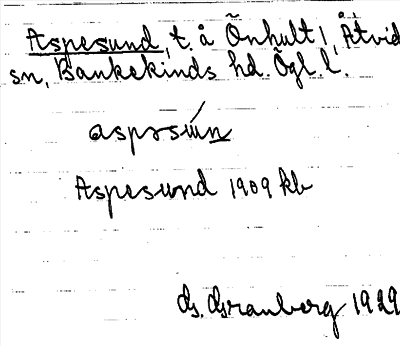 Aspesund, t. å Önhult 1, Åtvid
sn, Bankekinds hd. Ögl. l.
aspəsún
Aspesund 1909 kb
G. Granberg 1929